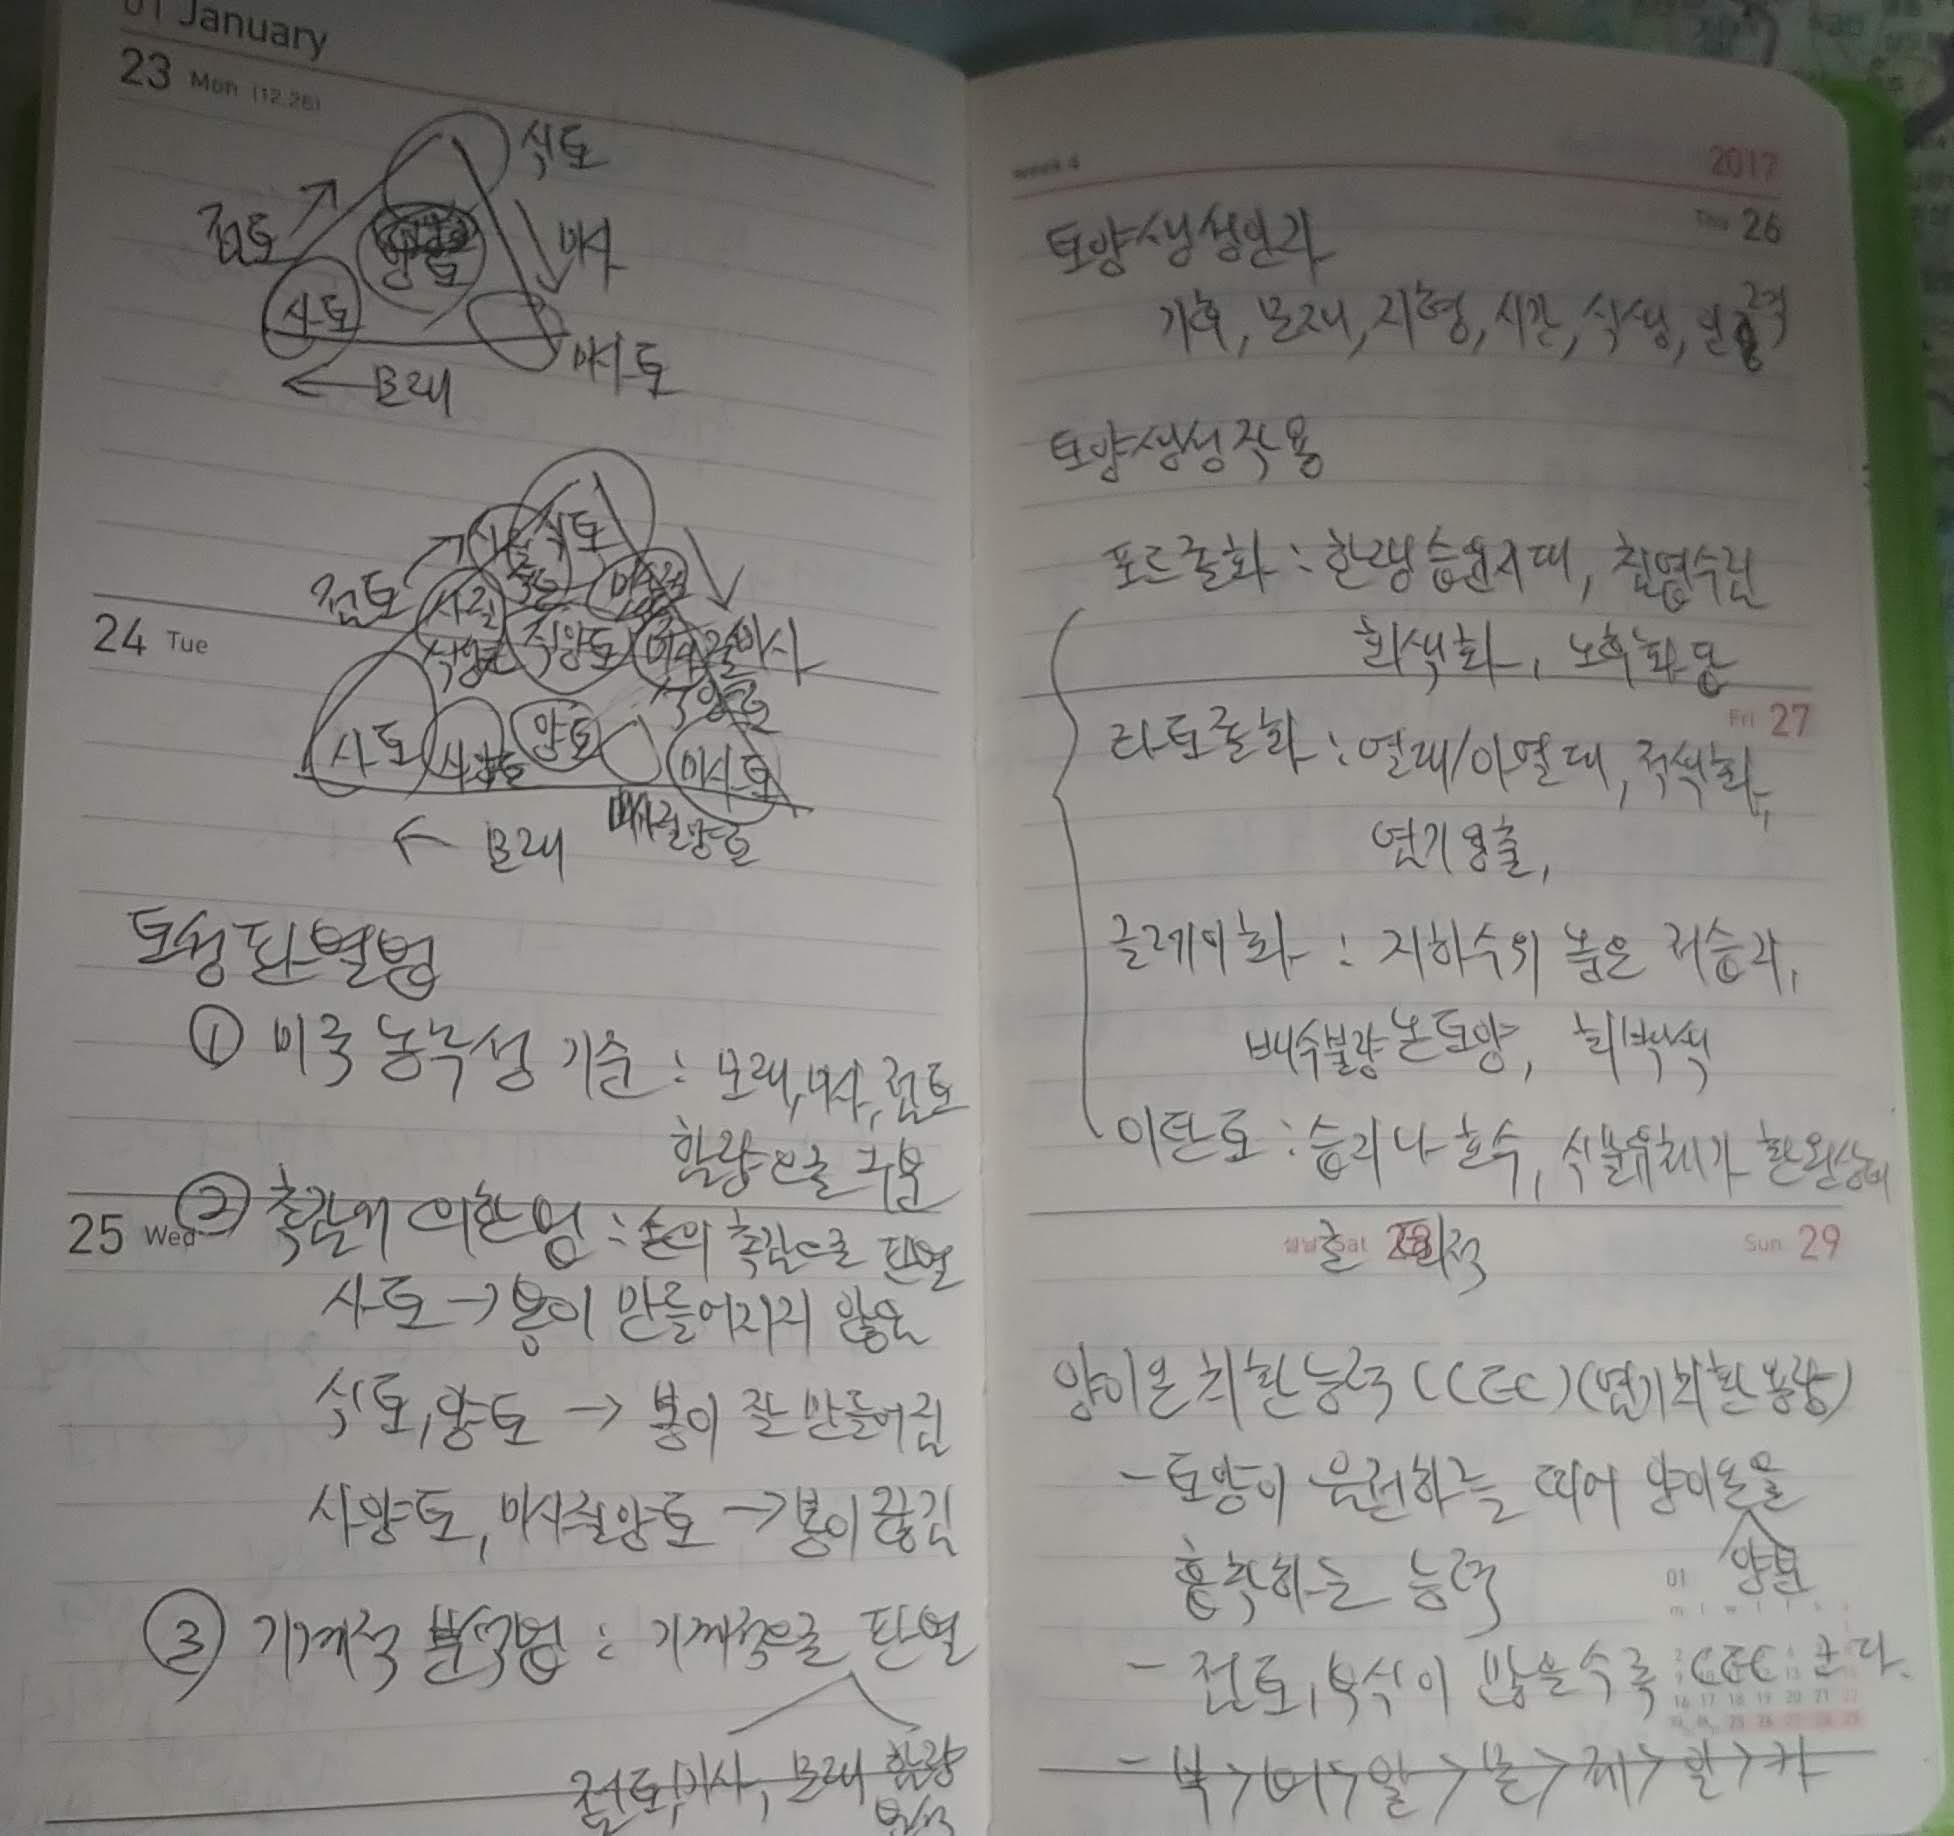 01 January
23 Mon (12.26)
식토
점토
미사
사토
미사토
모래
식토
점토
24 Tue
식양토
미사
사토
양토
미사토
모래
토성판별법
① 미국 농무성 기준 : 모래, 미사, 점토
함량으로 구분
25 Wed
② 촉감에 의한 법 : 손의 촉감으로 판별
사토 → 봉이 만들어지지 않음
식토, 양토 → 봉이 잘 만들어짐
사양토, 미사질양토 → 봉이 끊김
③ 기계적 분석법 : 기계적으로 판별
점토, 미사, 모래 함량
분석
week 4
2017
Thu 26
토양생성인자
기후, 모재, 지형, 시간, 식생,
토양생성작용
포드졸화 : 한랭습윤지대, 침엽수림
회색화, 노후화답
Fri 27
라토졸화 : 열대/아열대, 적색화,
염기용출,
글레이화 : 지하수위 높은 저습지,
배수불량 논토양, 회백색
이탄토 : 습지나 호수, 식물유체가 환원상태
로 퇴적
설날 Sat 28
Sun 29
양이온치환능력 (CEC) (염기치환용량)
- 토양이 음전하를 띠어 양이온을
양분
흡착하는 능력
- 점토, 부식이 많을수록 CEC 크다.
- 부 > 버 > 알 > 몬 > 제 > 일 > 카